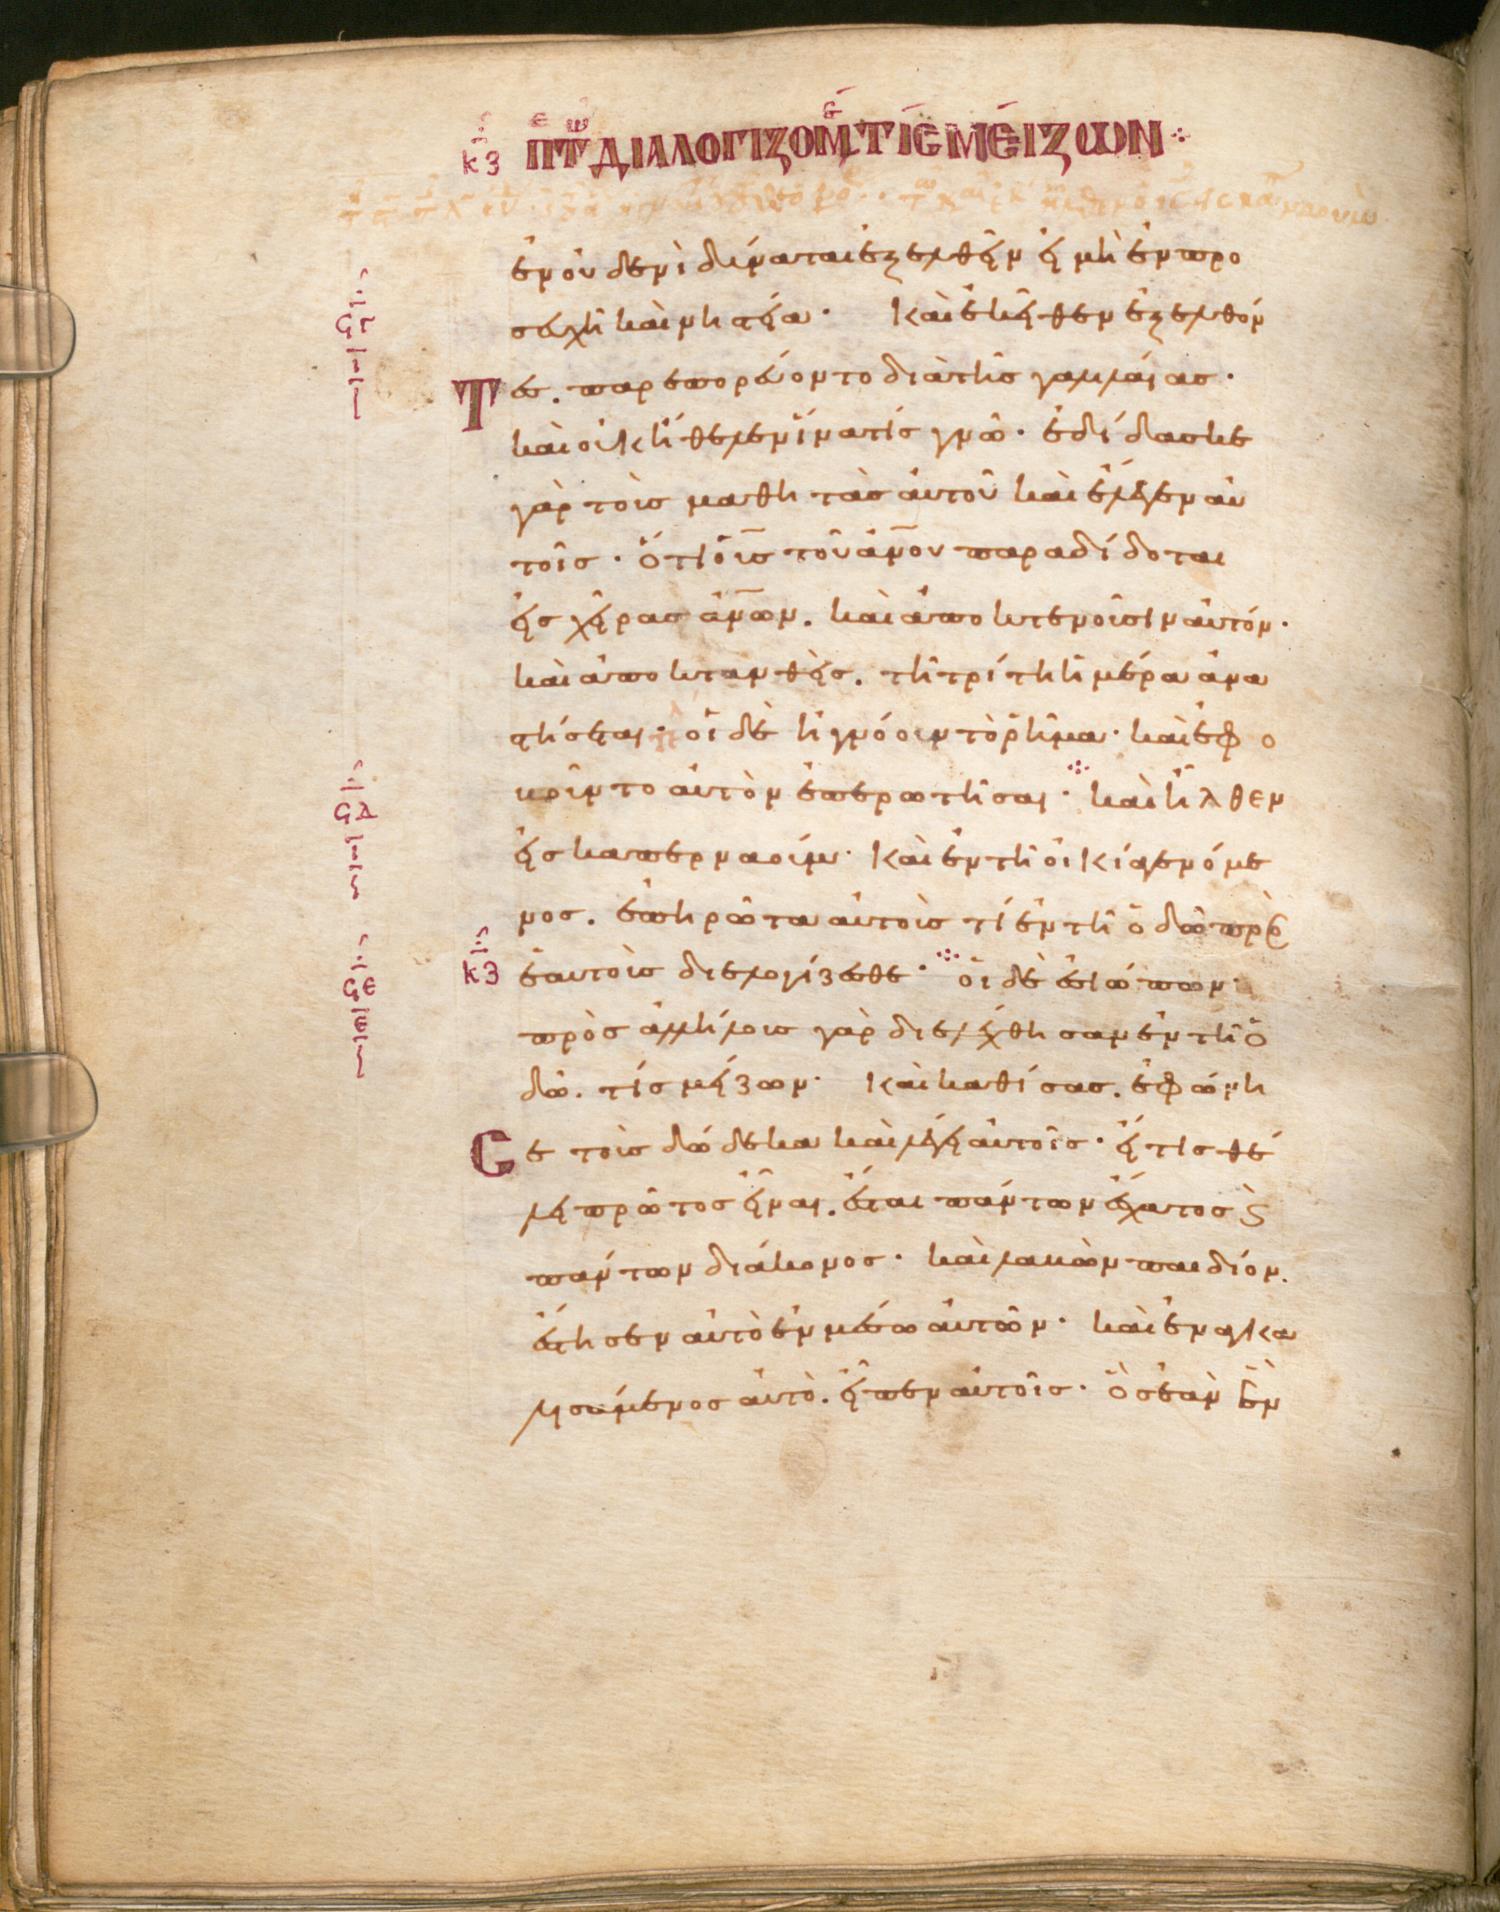 κζ ΠΤ ΔΙΑΛΟΓΙΖΟΜ ΤΙϹ ΜΕΙΖΩΝ
ἐν οὐδενὶ δύναται ἐξελθεῖν εἰ μὴ ἐν προ
σευχῆ καὶ νηστεία· Καὶ ἐκεῖθεν ἐξελθόν
Τες. παρεπορεύοντο διὰ τῆς γαλιλαίας·
καὶ οὐκ ἤθελεν ἵνα τίς γνῶ· ἐδίδασκε
γὰρ τοὺς μαθητὰς αὐτοῦ καὶ ἔλεγεν αὐ
τοῖς· ὅτι ὁ υἱς τοῦ ἀνου παραδίδοται
εἰς χεῖρας ἀνων. καὶ ἀποκτενοῦσιν αὐτόν·
καὶ ἀποκτανθεὶς. τῆ τρίτη ἡμέρα ἀνα
στήσεται· οἱ δὲ ἠγνόουν τὸ ῥῆμα· καὶ ἐφο
βοῦντο αὐτὸν ἐπερωτῆσαι· καὶ ἦλθεν
εἰς καπερναούμ· Καὶ ἐν τῆ οἰκία γενόμε
νος. ἐπηρώτα αὐτοὺς τί ἐν τῆ ὁδῶ πρὸς
κζ ἑαυτοὺς διελογίζεσθε· οἱ δὲ ἐσιώπων·
πρὸς ἀλλήλους γὰρ διελέχθησαν ἐν τῆ ὁ
δῶ. τίς μείζων· Καὶ καθίσας. ἐφώνη
Ϲε τοὺς δώδεκα καὶ λέγει αὐτοῖς· εἴ τις θέ
λει πρῶτος εἶναι. ἔσται πάντων ἔσχατος ϗ
πάντων διάκονος· καὶ λαβὼν παιδίον.
ἔστησεν αὐτὸ ἐν μέσω αὐτῶν· καὶ ἐναγκα
λισάμενος αὐτὸ. εἶπεν αὐτοῖς· ὃς ἐὰν ἓν